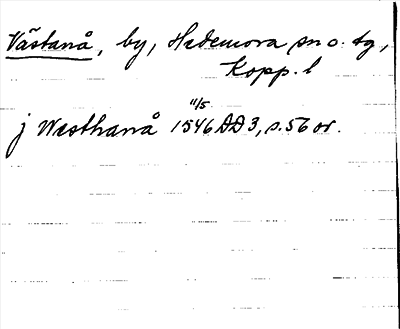 Västanå, by, Hedemora sn o. tg,
Kopp. l
j Westhanå 11/5 1546 DD 3, s. 56 or.